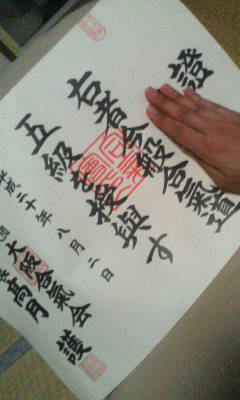 證
右者今般合氣道
五級を授與す
平成二十年八月二日
大阪合氣会
高月 護